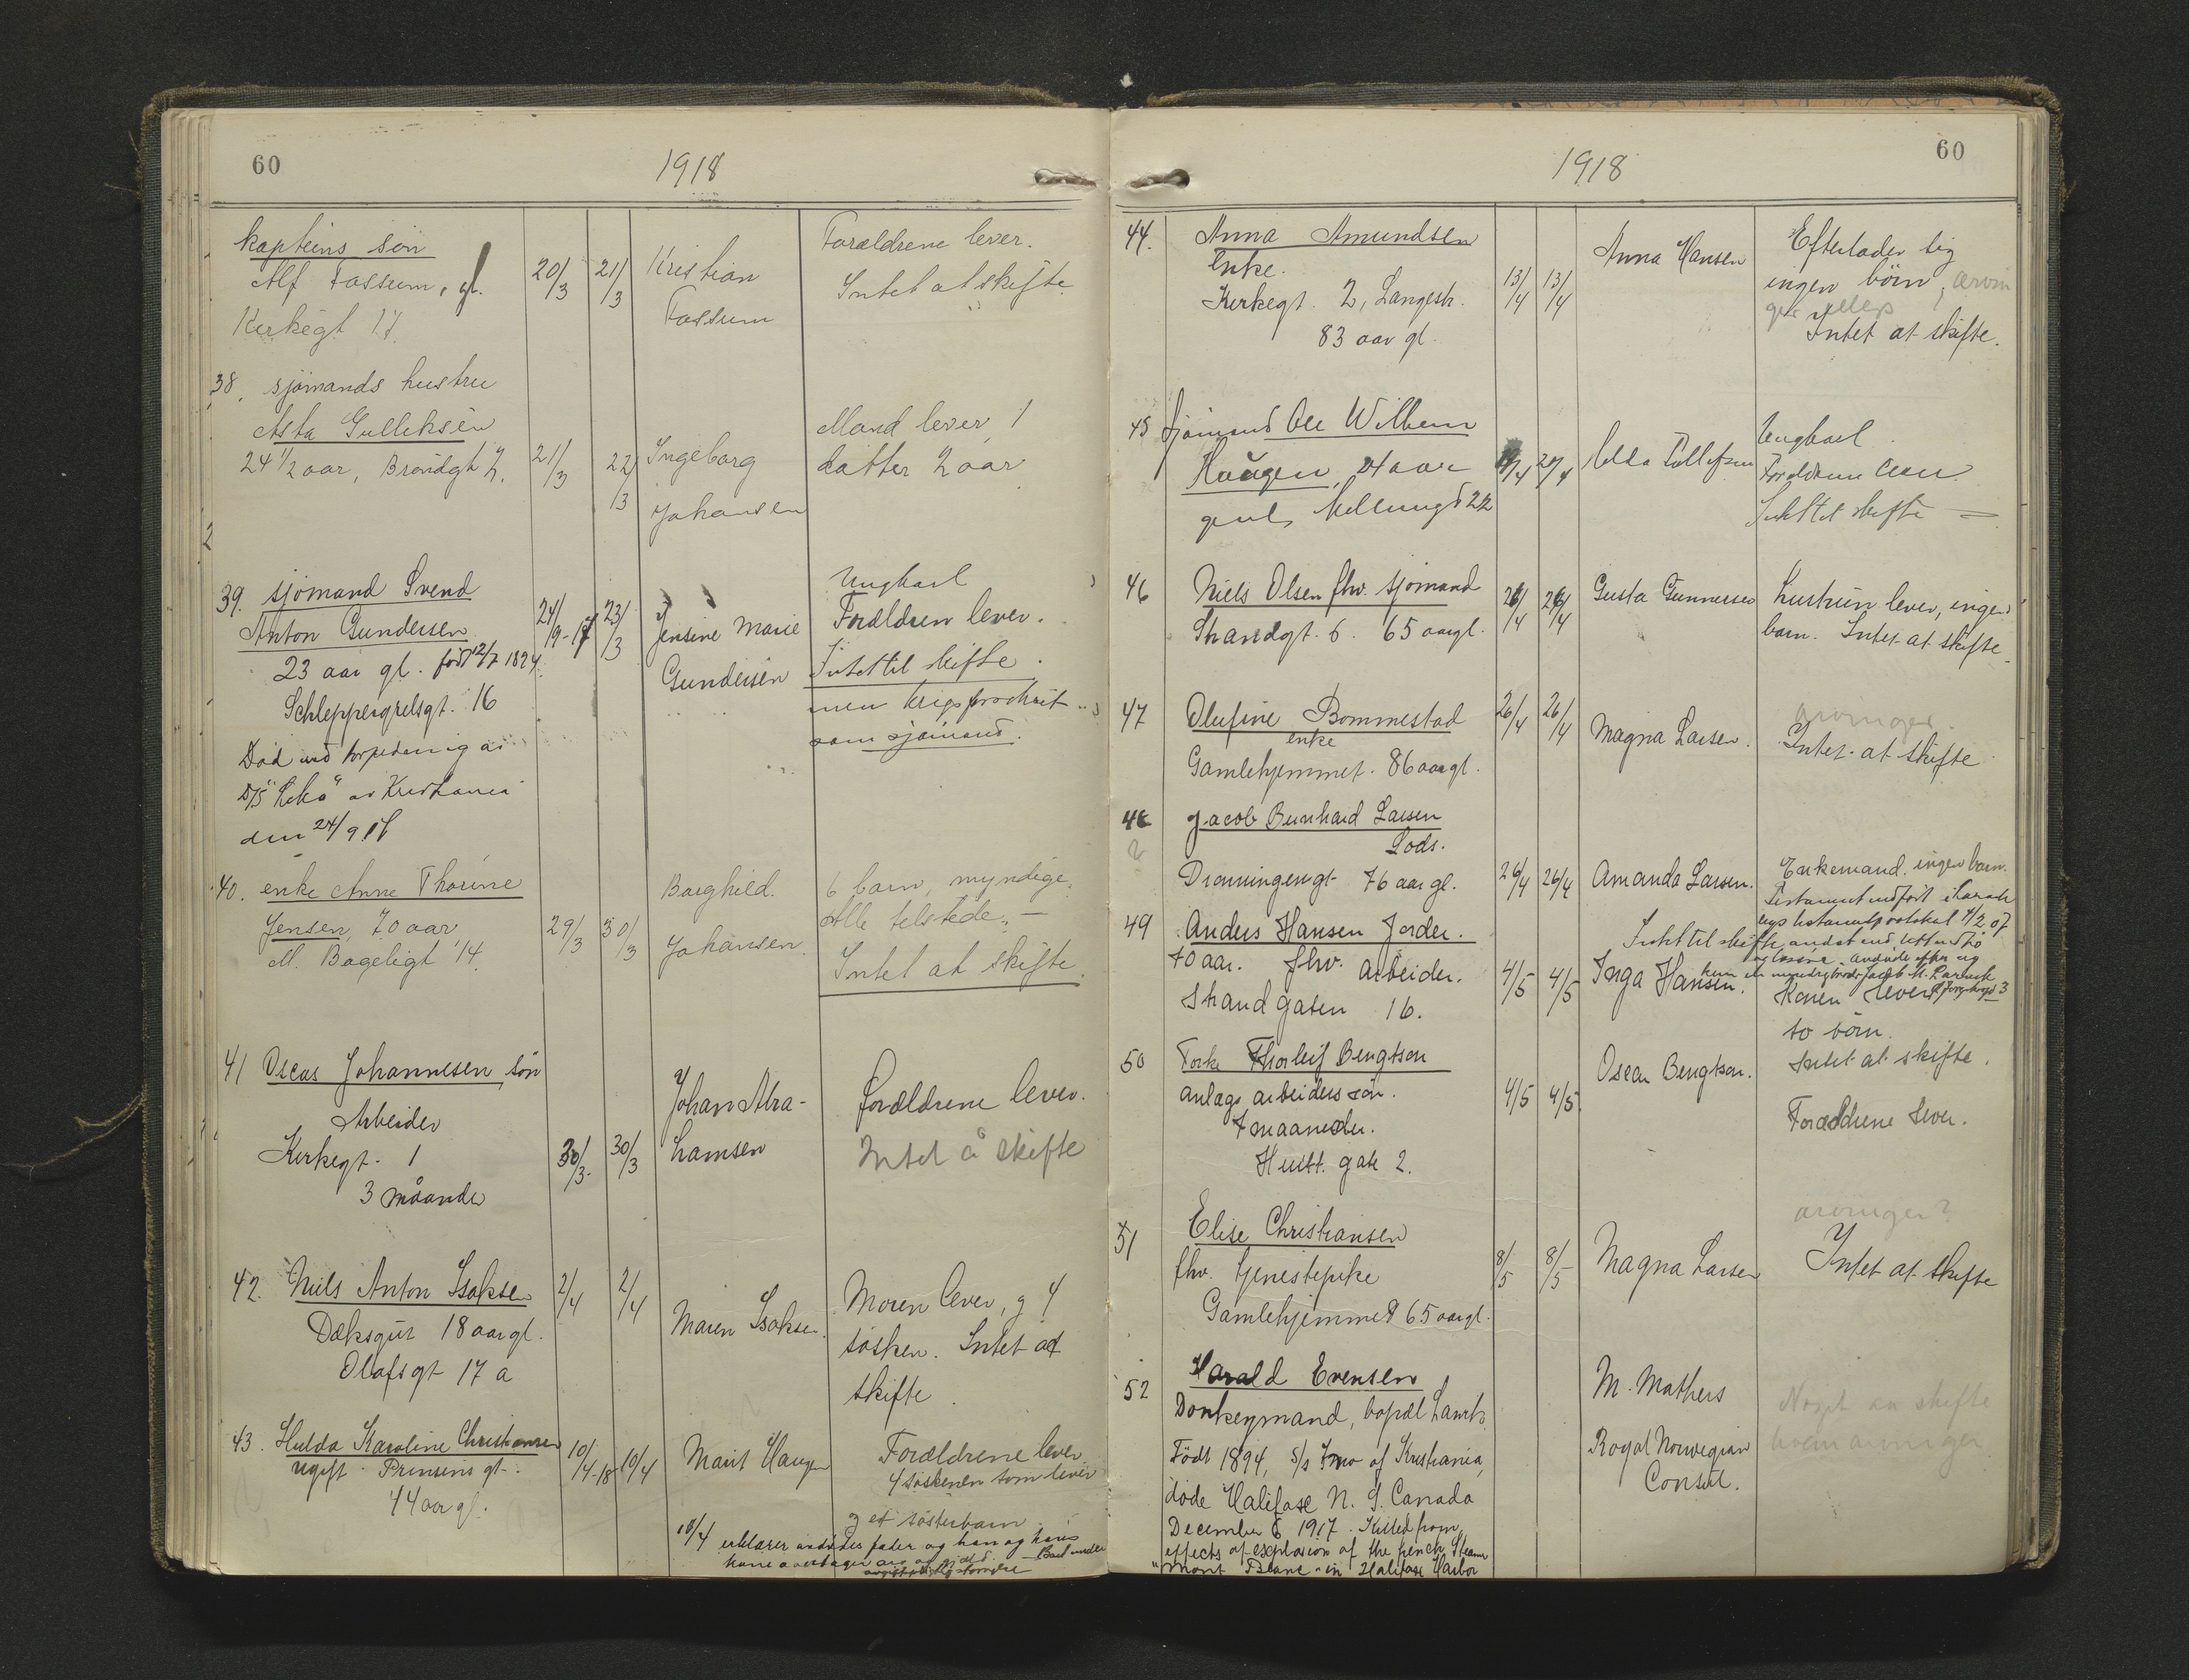 60
1918
kapteins søn
Alf Fossum, gl.
Kirkegt 17.
20/3
21/3
Kristian
Fossum
Forældrene lever.
Intet at skifte
38. sjømands hustru
Asta Gulliksen
24 1/2 aar, Brøndgt 7.
21/3
22/3
Ingeborg
Johansen
Mand lever, 1
datter 2 aar
39. sjømand Svend
Anton Gundersen
23 aar gl. født 12/7 1894.
Schleppegrelsgt. 16
Død ved torpedering av
D/S "Leka" av Kristiania
den 24/9 17
24/9-17
23/3
Jensine Marie
Gundersen
Ungkarl
Forældren lever.
Intet til skifte.
men krigsforsikret
som sjømand.
40. enke Anne Thorine
Jensen, 70 aar
M. Bageligt 14.
29/3
30/3
Borghild.
Johansen
6 barn, myndige.
Alle tilstede. —
Intet at skifte.
41 Oscar Johannesen, søn
Arbeider
Kirkegt. 1
3 måander
30/3.
30/3
Johan Abra-
hamsen
forældrene lever.
Intet å skifte
42. Niels Anton Isaksen
Dæksgut 18 aar gl.
Olafsgt 17 a
2/4
2/4
Maren Isaksen.
Moren lever, g 4
søsken. Intet at
skifte.
43. Hulda Karoline Christiansen
ugift. Prinsens gt.
44 aar gl.
10/4-18
10/4
Marit Haugen
Forældrene lever
4 søskenen som lever
og et søsterbarn.
10/4 erklærer avdødes fader og han og hans
kone overtager arv og gjæld.
60
1918
44. Anna Amundsen
Enke.
Kirkegt. 2, Langestr.
83 aar gl.
13/4
13/4
Anna Hansen
Efterlader sig
ingen børn, arvin
ger ellers
Intet at skifte.
45 Sjømand Ole Wilhem
Haugen, 24 aar
20/4
Ungkarl.
Intet til skifte —
46 Niels Olsen fhv. sjømand
Strandgt. 6. 65 aar gl.
26/4
26/4
Gusta Gunnersen
Hustruen lever, ingen
barn. Intet at skifte.
47 Olufine Bommestad
enke
Gamlehjemmet. 86 aar gl.
26/4
26/4
Magna Larsen.
arvinger.
Intet at skifte
48 Jacob Bernhard Larsen
Lods.
Dronningengt 76 aar gl.
26/4
26/4
Amanda Larsen.
Enkemand, ingen barn.
49 Anders Hansen Jorder.
70 aar. fhv. Arbeider.
Strandgaten 16.
4/5
4/5
Inga Hansen.
Konen lever
to børn.
Intet at skifte.
50 Thorleif Bengtson
anlægs arbeiders søn.
7 maaneder.
Huitt. gate 2.
4/5
4/5.
Oscar Bengtson.
Forældrene lever.
51 Elise Christiansen
fhv. tjenestepike
Gamlehjemmet 65 aar gl.
8/5
8/5
Magna Larsen
arvinger?
Intet at skifte
52 Harald Evensen
Donkeymand, bopæl Larvik
Født 1894, S/S Imo of Kristiania,
døde Halifax N. S. Canada
December 6 1917. Killed from
effects of explosion of the french Steamer
"Mont Blanc" in Halifax Harbor
M. Mathers
Royal Norwegian
Consul.